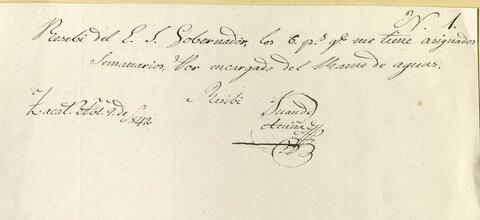 N. 1.
Resebi del E. S. Gobernador, los 6. p.s q.e me tiene asignados
Semanarios, Por encargado del Ramo de aguas.
Zacat.s 9 de 842
Resibi
Juan de